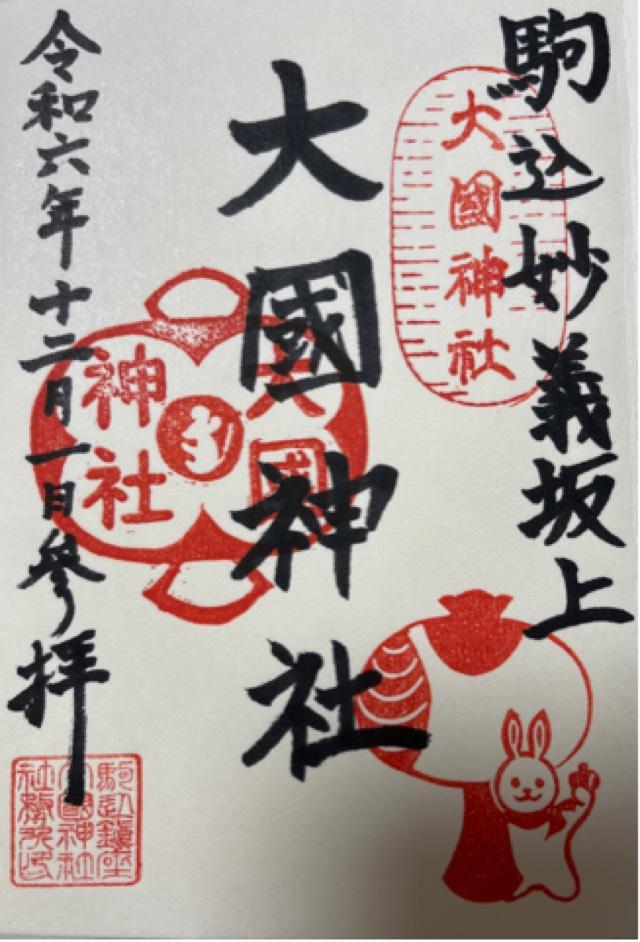 駒込妙義坂上
大國神社
大國神社
大國
神社
令和六年十二月一日参拝
駒込鎮座
大國神社